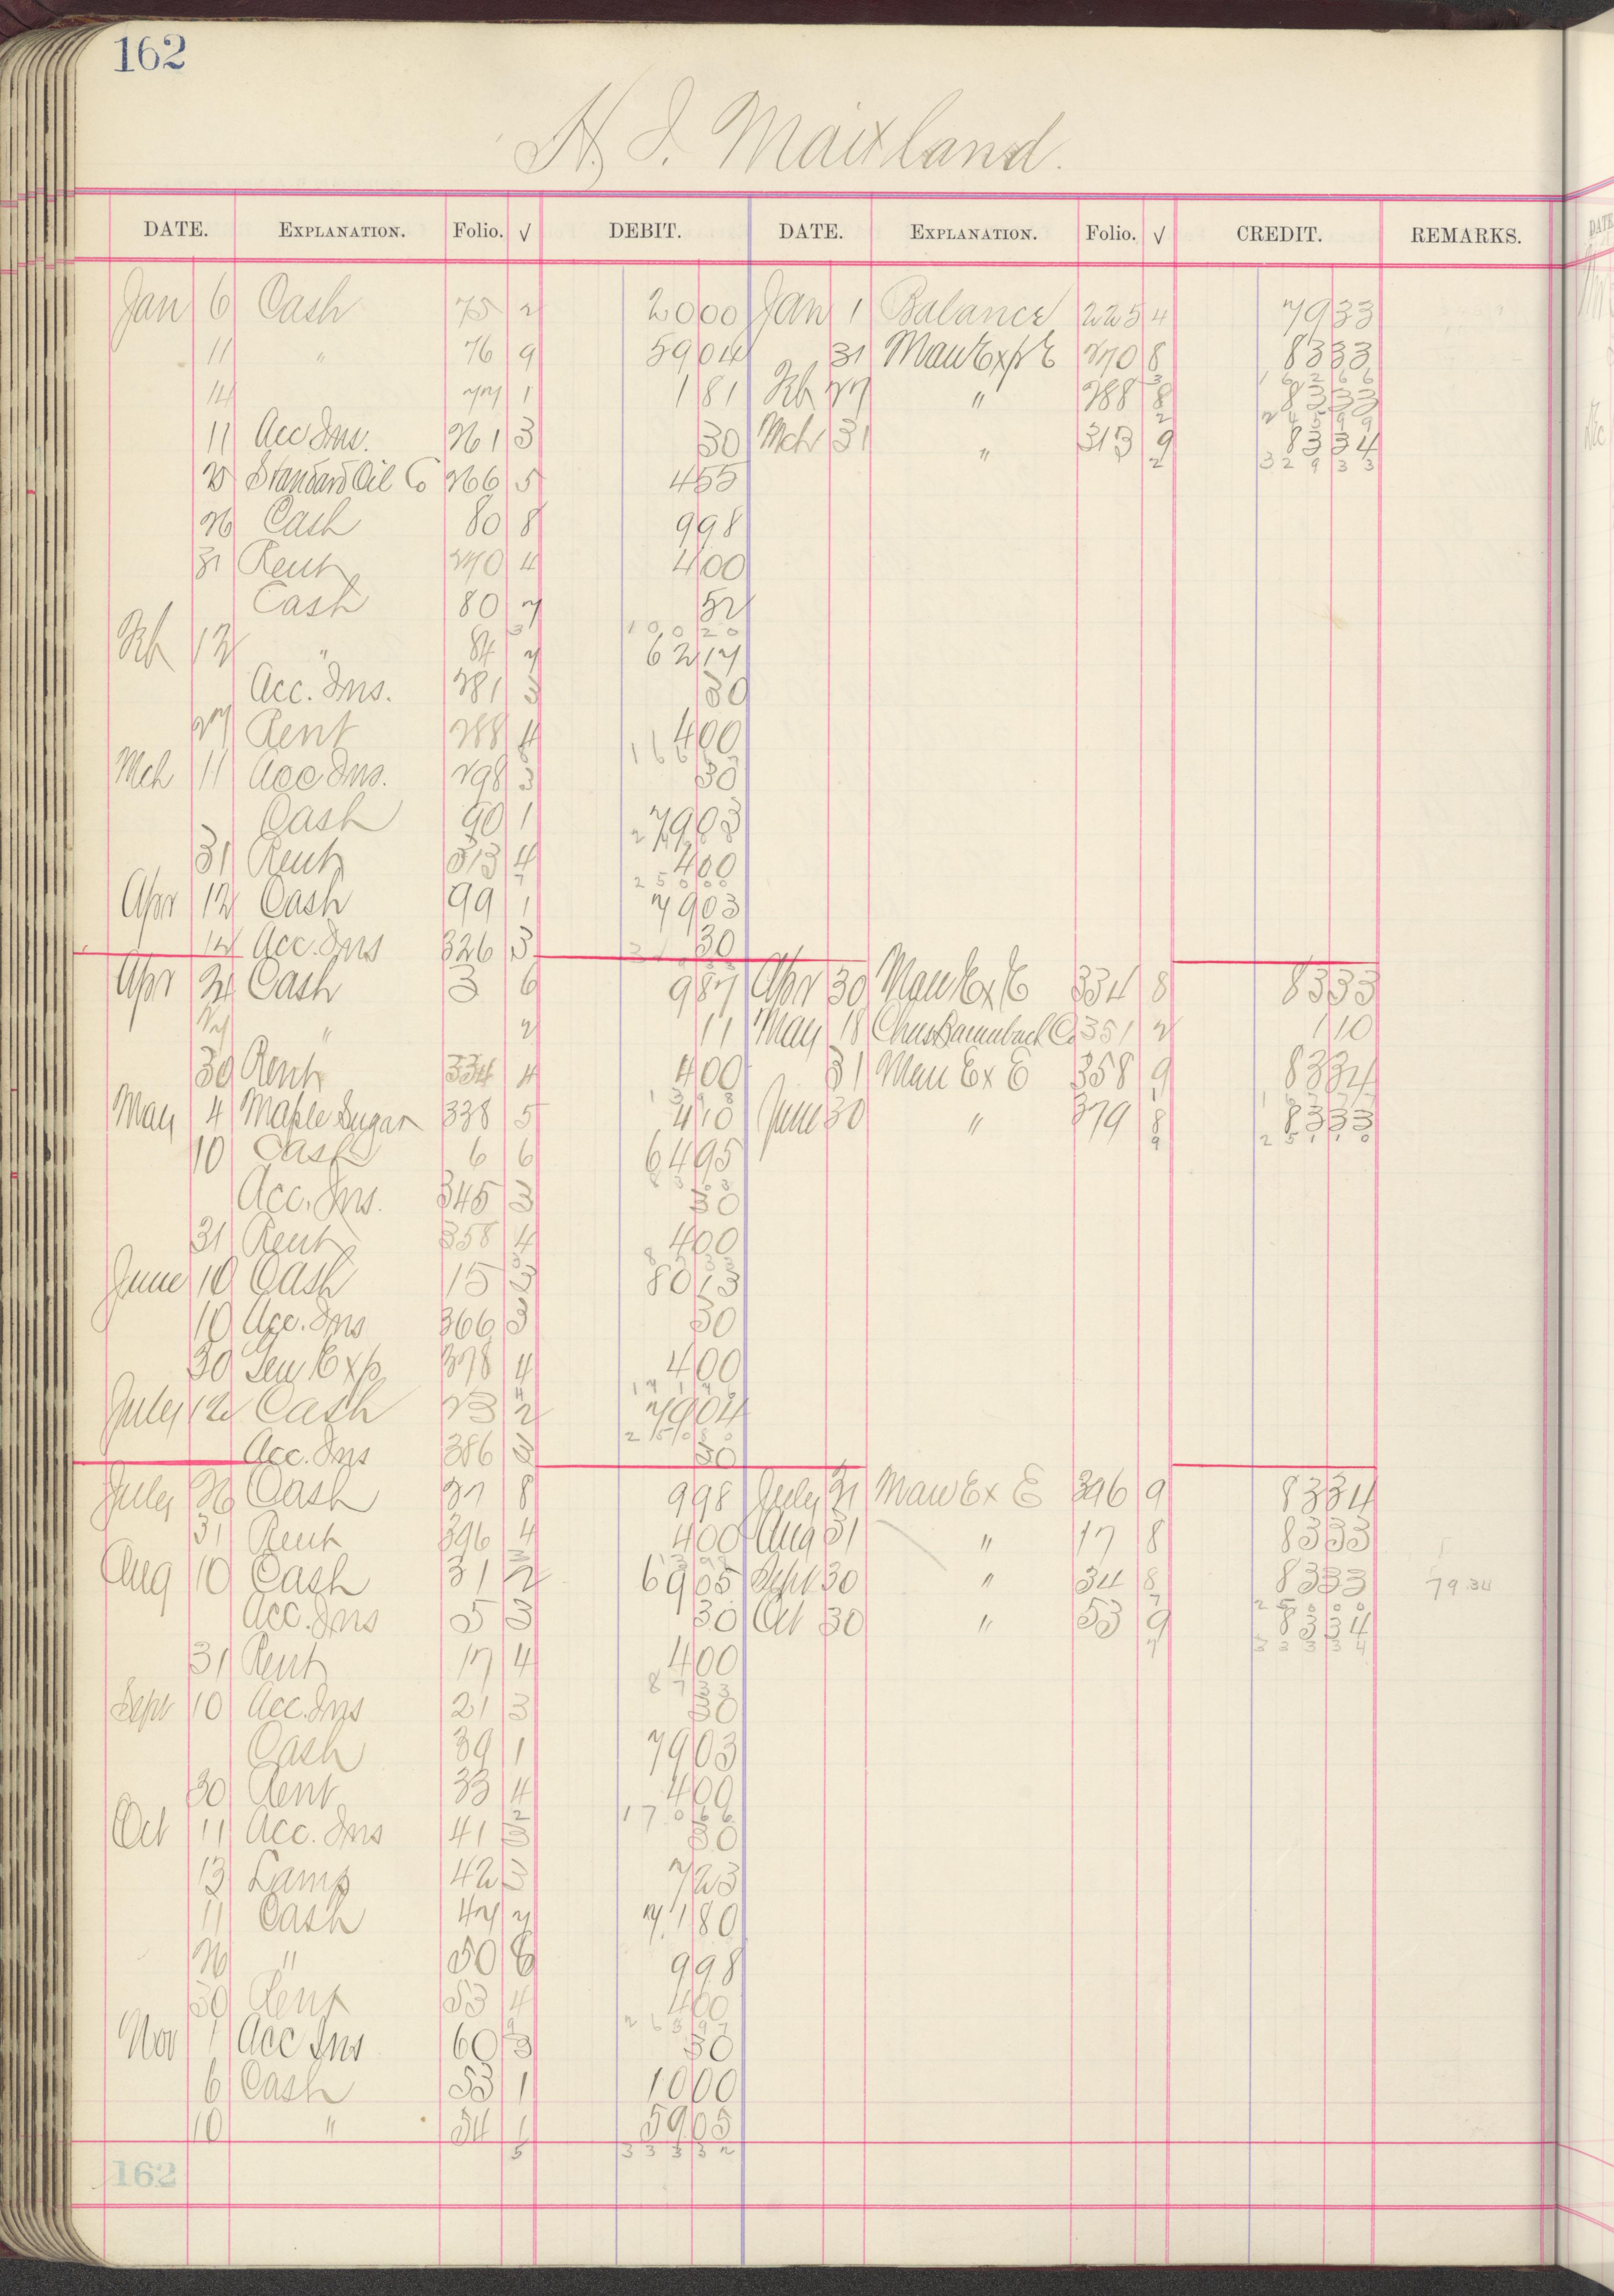 162
H. J. Maitland.
DATE. EXPLANATION. Folio. √ DEBIT. DATE. EXPLANATION. Folio. √ CREDIT. REMARKS.
Jan 6 Cash 75 2 2000 Jan 1 Balance 225 4 7933
11 " 76 9 5904 31 Man Exp E 270 8 8333
16266
14 77 1 181 Feb 27 " 288 8 8333
24599
11 Acc Ins. 261 3 30 Mch 31 " 313 9 8334
32933
25 Standard Oil Co 266 5 455
26 Cash 80 8 998
31 Rent 270 4 400
Cash 80 7 52
10020
Feb 12 " 84 7 6217
Acc. Ins. 281 3 30
27 Rent 288 4 400
Mch 11 Acc Ins. 298 3 30
Cash 90 1 7903
31 Rent 313 4 400
Apr 12 Cash 99 1 7903
12 Acc. Ins 326 3 30
Apr Cash 3 6 987 Apr 30 Man Ex E 334 8 8333
27 " 2 11 May 18 Chas Baumbach Co 351 2 110
30 Rent 334 4 400 31 Man Ex E 358 9 8334
May 4 Maple Sugar 338 5 410 June 30 " 379 8 8333
25110
10 Cash 6 6 6495
Acc. Ins. 345 3 30
31 Rent 358 4 400
June 10 Cash 15 3 8013
10 Acc. Ins 366 3 30
30 Gen Exp 378 4 400
July 12 Cash 23 2 7904
Acc. Ins 386 3 30
July 26 Cash 27 8 998 July 31 Man Ex E 396 9 8334
31 Rent 396 4 400 Aug 31 " 17 8 8333
Aug 10 Cash 31 2 6905 Sept 30 " 34 8 8333 7934
25000
Acc. Ins 5 3 30 Oct 30 " 53 9 8334
33334
31 Rent 17 4 400
8733
Sept 10 Acc. Ins 21 3 30
Cash 39 1 7903
30 Rent 33 4 400
17066
Oct 11 Acc. Ins 41 3 30
13 Lamp 42 3 723
11 Cash 47 7 7180
26 " 50 8 998
30 Rent 53 4 400
26397
Nov 1 Acc Ins 60 3 30
6 Cash 53 1 1000
10 " 54 1 5905
5 33332
162